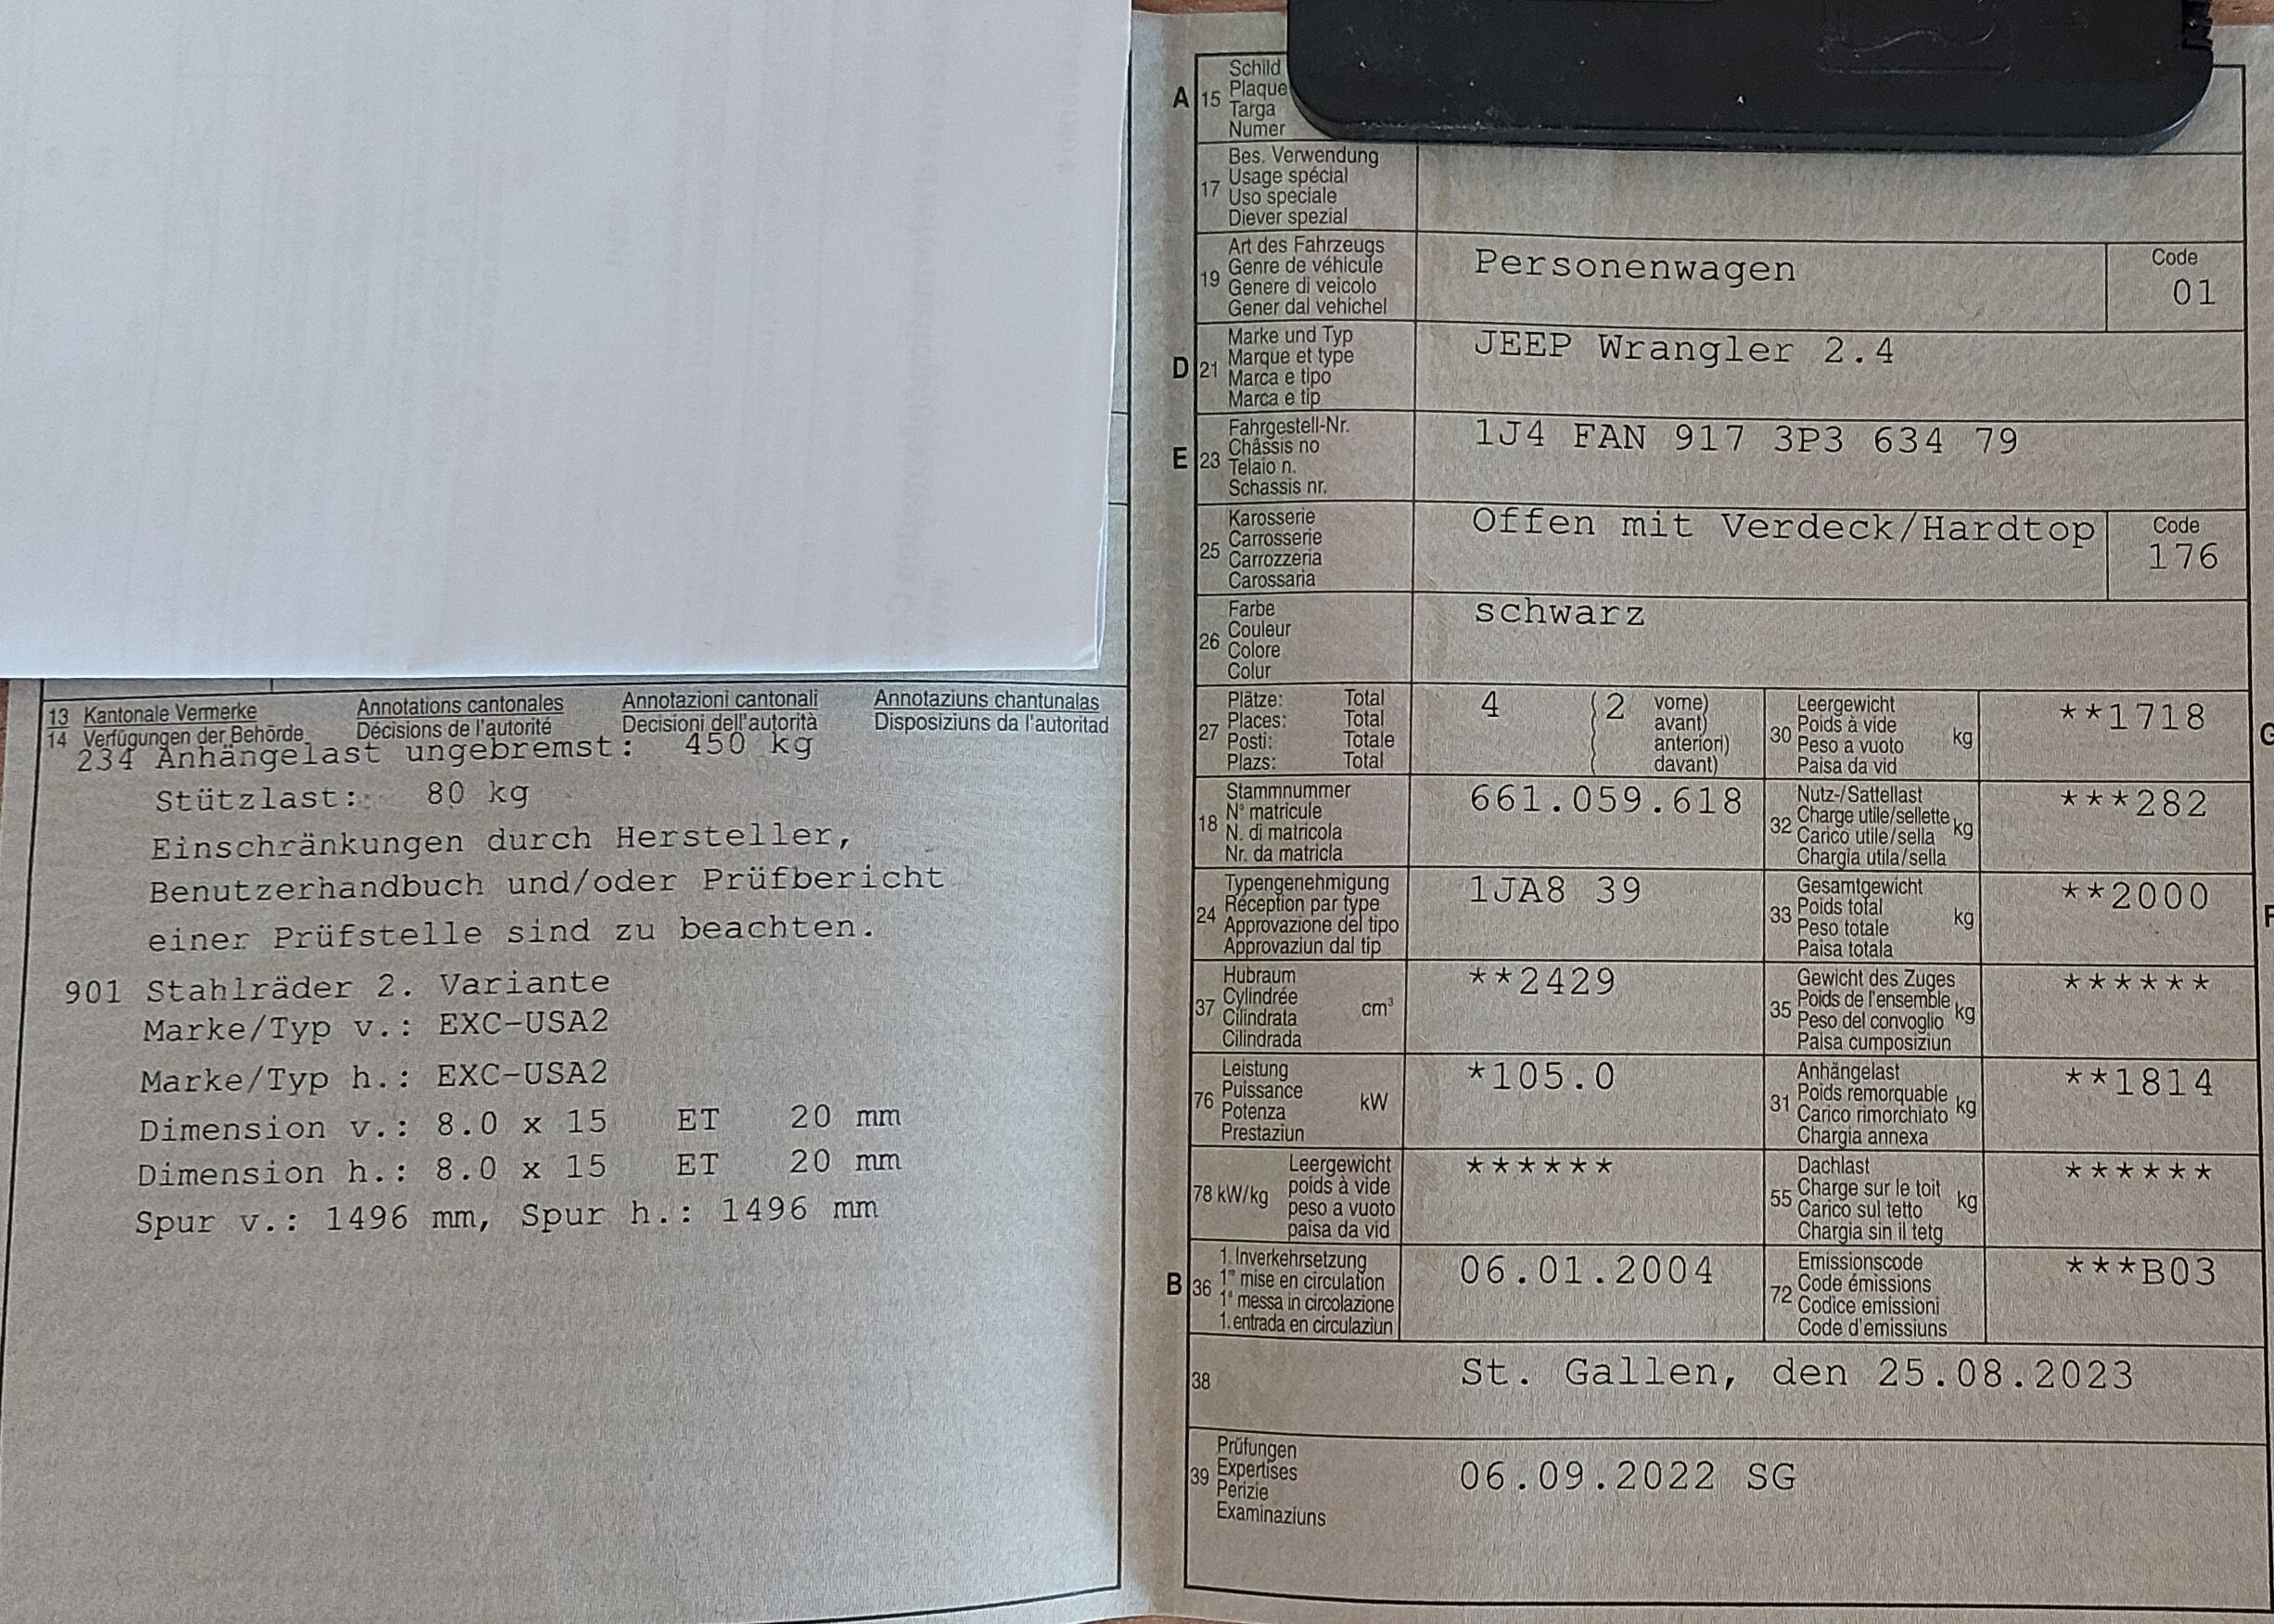 13 Kantonale Vermerke Annotations cantonales Annotazioni cantonali Annotaziuns chantunalas
14 Verfügungen der Behörde Décisions de l'autorité Decisioni dell'autorità Disposiziuns da l'autoritad
234 Anhängelast ungebremst: 450 kg
Stützlast: 80 kg
Einschränkungen durch Hersteller,
Benutzerhandbuch und/oder Prüfbericht
einer Prüfstelle sind zu beachten.
901 Stahlräder 2. Variante
Marke/Typ v.: EXC-USA2
Marke/Typ h.: EXC-USA2
Dimension v.: 8.0 x 15 ET 20 mm
Dimension h.: 8.0 x 15 ET 20 mm
Spur v.: 1496 mm, Spur h.: 1496 mm
A 15 Schild
Plaque
Targa
Numer
17 Bes. Verwendung
Usage spécial
Uso speciale
Diever spezial
19 Art des Fahrzeugs
Genre de véhicule
Genere di veicolo
Gener dal vehichel
Personenwagen
Code
01
D 21 Marke und Typ
Marque et type
Marca e tipo
Marca e tip
JEEP Wrangler 2.4
E 23 Fahrgestell-Nr.
Châssis no
Telaio n.
Schassis nr.
1J4 FAN 917 3P3 634 79
25 Karosserie
Carrosserie
Carrozzeria
Carossaria
Offen mit Verdeck/Hardtop
Code
176
26 Farbe
Couleur
Colore
Colur
schwarz
27 Plätze: Total
Places: Total
Posti: Totale
Plazs: Total
4 (2 vorne)
avant)
anteriori)
davant)
30 Leergewicht
Poids à vide
Peso a vuoto kg
Paisa da vid
**1718
G
18 Stammnummer
N° matricule
N. di matricola
Nr. da matricla
661.059.618
32 Nutz-/Sattellast
Charge utile/sellette
Carico utile/sella kg
Chargia utila/sella
***282
24 Typengenehmigung
Réception par type
Approvazione del tipo
Approvaziun dal tip
1JA8 39
33 Gesamtgewicht
Poids total
Peso totale kg
Paisa totala
**2000
F
37 Hubraum
Cylindrée
Cilindrata cm³
Cilindrada
**2429
35 Gewicht des Zuges
Poids de l'ensemble
Peso del convoglio kg
Paisa cumposiziun
******
76 Leistung
Puissance
Potenza kW
Prestaziun
*105.0
31 Anhängelast
Poids remorquable
Carico rimorchiato kg
Chargia annexa
**1814
78 kW/kg Leergewicht
poids à vide
peso a vuoto
paisa da vid
******
55 Dachlast
Charge sur le toit
Carico sul tetto kg
Chargia sin il tetg
******
B 36 1. Inverkehrsetzung
1re mise en circulation
1a messa in circolazione
1. entrada en circulaziun
06.01.2004
72 Emissionscode
Code émissions
Codice emissioni
Code d'emissiuns
***B03
38 St. Gallen, den 25.08.2023
39 Prüfungen
Expertises
Perizie
Examinaziuns
06.09.2022 SG